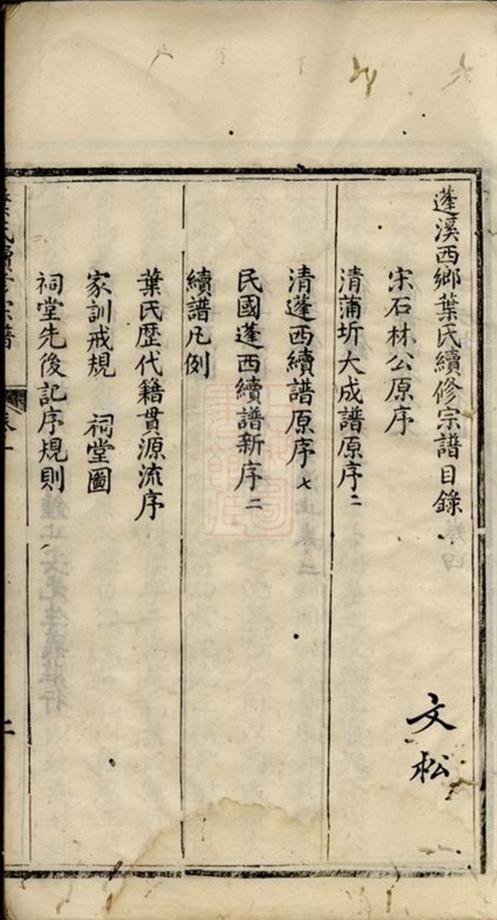 蓬溪西鄉葉氏續修宗譜目錄
文松
宋石林公原序
清蒲圻大成譜原序二
清蓬西續譜原序七
民國蓬西續譜新序二
續譜凡例
葉氏歷代籍貫源流序
家訓戒規 祠堂圖
祠堂先後記序規則